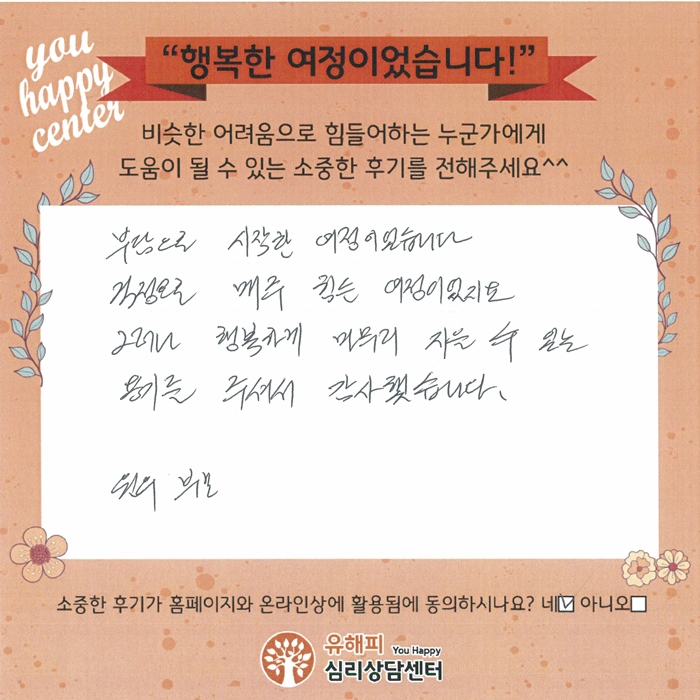 you
happy
center
“행복한 여정이었습니다!”
비슷한 어려움으로 힘들어하는 누군가에게
도움이 될 수 있는 소중한 후기를 전해주세요^^
부담으로 시작한 여정이었습니다
걱정으로 매주 찍는 여정이었지요
그러나 행복하게 마무리 지을 수 있는
용기를 주셔서 감사했습니다.
부모
소중한 후기가 홈페이지와 온라인상에 활용됨에 동의하시나요? 네☑ 아니오☐
유해피 You Happy
심리상담센터